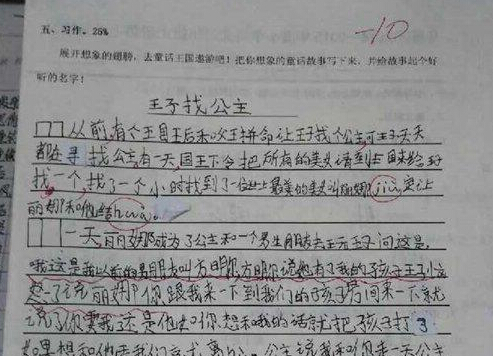 五、习作。25%
-10
展开想象的翅膀,去童话王国遨游吧!把你想象的童话故事写下来,并给故事起个好
听的名字!
王子找公主
从前,有个王国王后和国王拼命让王子找个公主可王子天天
都在寻找公主,有一天国王下令把所有的美女请到王国来给王子
找一个,找了一个小时找到了一位世上最美的美女叫丽娜jiù,定让
丽娜和他结hūn。
一天丽娜成为了公主和一个男生朋友去玩王子问这是,
哦这是我以前的男朋友叫方明,方明说他有了我的孩子王子
了说丽娜你跟我来一下到我们的孩子房间来一下就
说了你要我还是他和你想和我的话就把孩子打了
如果想和他